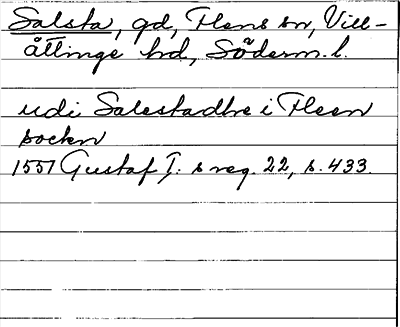 Salsta, gd, Flens sn, Vill-
åttinge hd, Söderm. l.
udi Salestadhe i Fleen
socken
1551 Gustaf I:s reg. 22, s. 433.